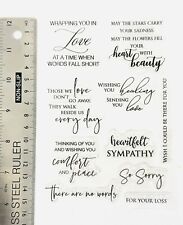 WRAPPING YOU IN
Love
AT A TIME WHEN
WORDS FALL SHORT
MAY THE STARS CARRY
YOUR SADNESS
MAY THE FLOWERS FILL
YOUR
heart WITH
beauty
THOSE WE DON'T
love GO AWAY.
THEY WALK
BESIDE US
every day
WISHING
YOU healing
SENDING
YOU love
WISH I COULD BE THERE FOR YOU
THINKING OF YOU
AND WISHING YOU
comfort
and peace
heartfelt
SYMPATHY
So Sorry
there are no words
FOR YOUR LOSS
NON-SLIP
SS STEEL RULER